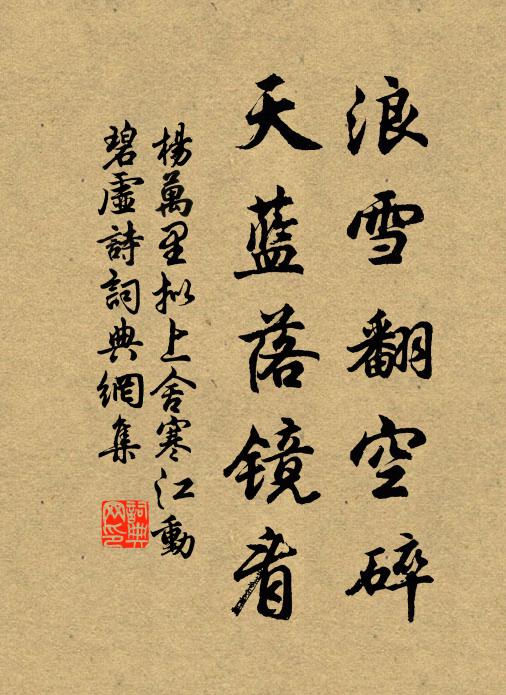 浪雪翻空碎
天蓝落镜看
楊萬里拟上舍寒江動
碧虛詩詞典網集
詞典
网印